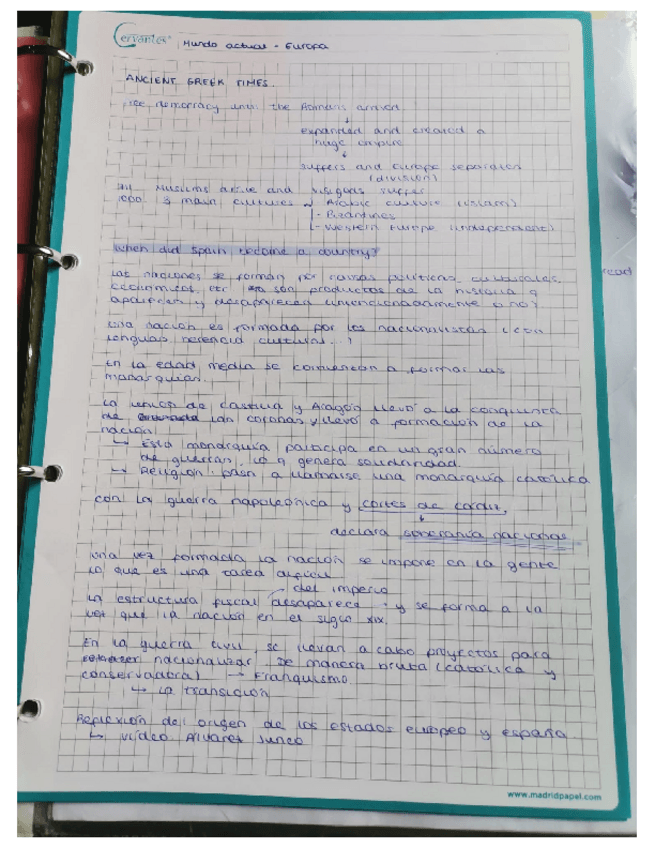 Cervantes Mundo actual - Europa
ANCIENT GREEK TIMES.
see democracy until the Romans arrived
↓
expanded and created a
huge empire
↓
suffers and Europe separates
(division)
Muslims arrive and visigods suffer
3 main cultures → Arabic culture (islam)
- Bizantines
- Western Europe (independent)
When did Spain become a country?
read
Las naciones se forman por causas políticas, culturales,
económicas, etc son productos de la historia q
aparecen y desaparecen intencionadamente o no?
Una nación es formada por los nacionalistas (con
lenguas, herencia cultural...)
En la edad media se comienzan a formar las
monarquías.
La unión de Castilla y Aragón llevó a la conquista
de las coronas y llevó a formación de la
nación
↳ Esta monarquía participa en un gran número
de guerras, lo q genera solidaridad.
↳ Religión: pasa a llamarse una monarquía católica
Con la guerra napoleónica y cortes de cádiz,
↓
declara soberanía nacional
Una vez formada la nación se impone en la gente
lo que es una tarea difícil
del imperio
La estructura fiscal desaparece y se forma a la
vez que la nación en el siglo XIX.
En la guerra civil, se llevan a cabo proyectos para
nacionalizar de manera bruta (católica y
conservadora) → Franquismo
↳ La transición
Reflexión del origen de los estados europeo y españa
↳ video Alvarez Junco
www.madridpapel.com